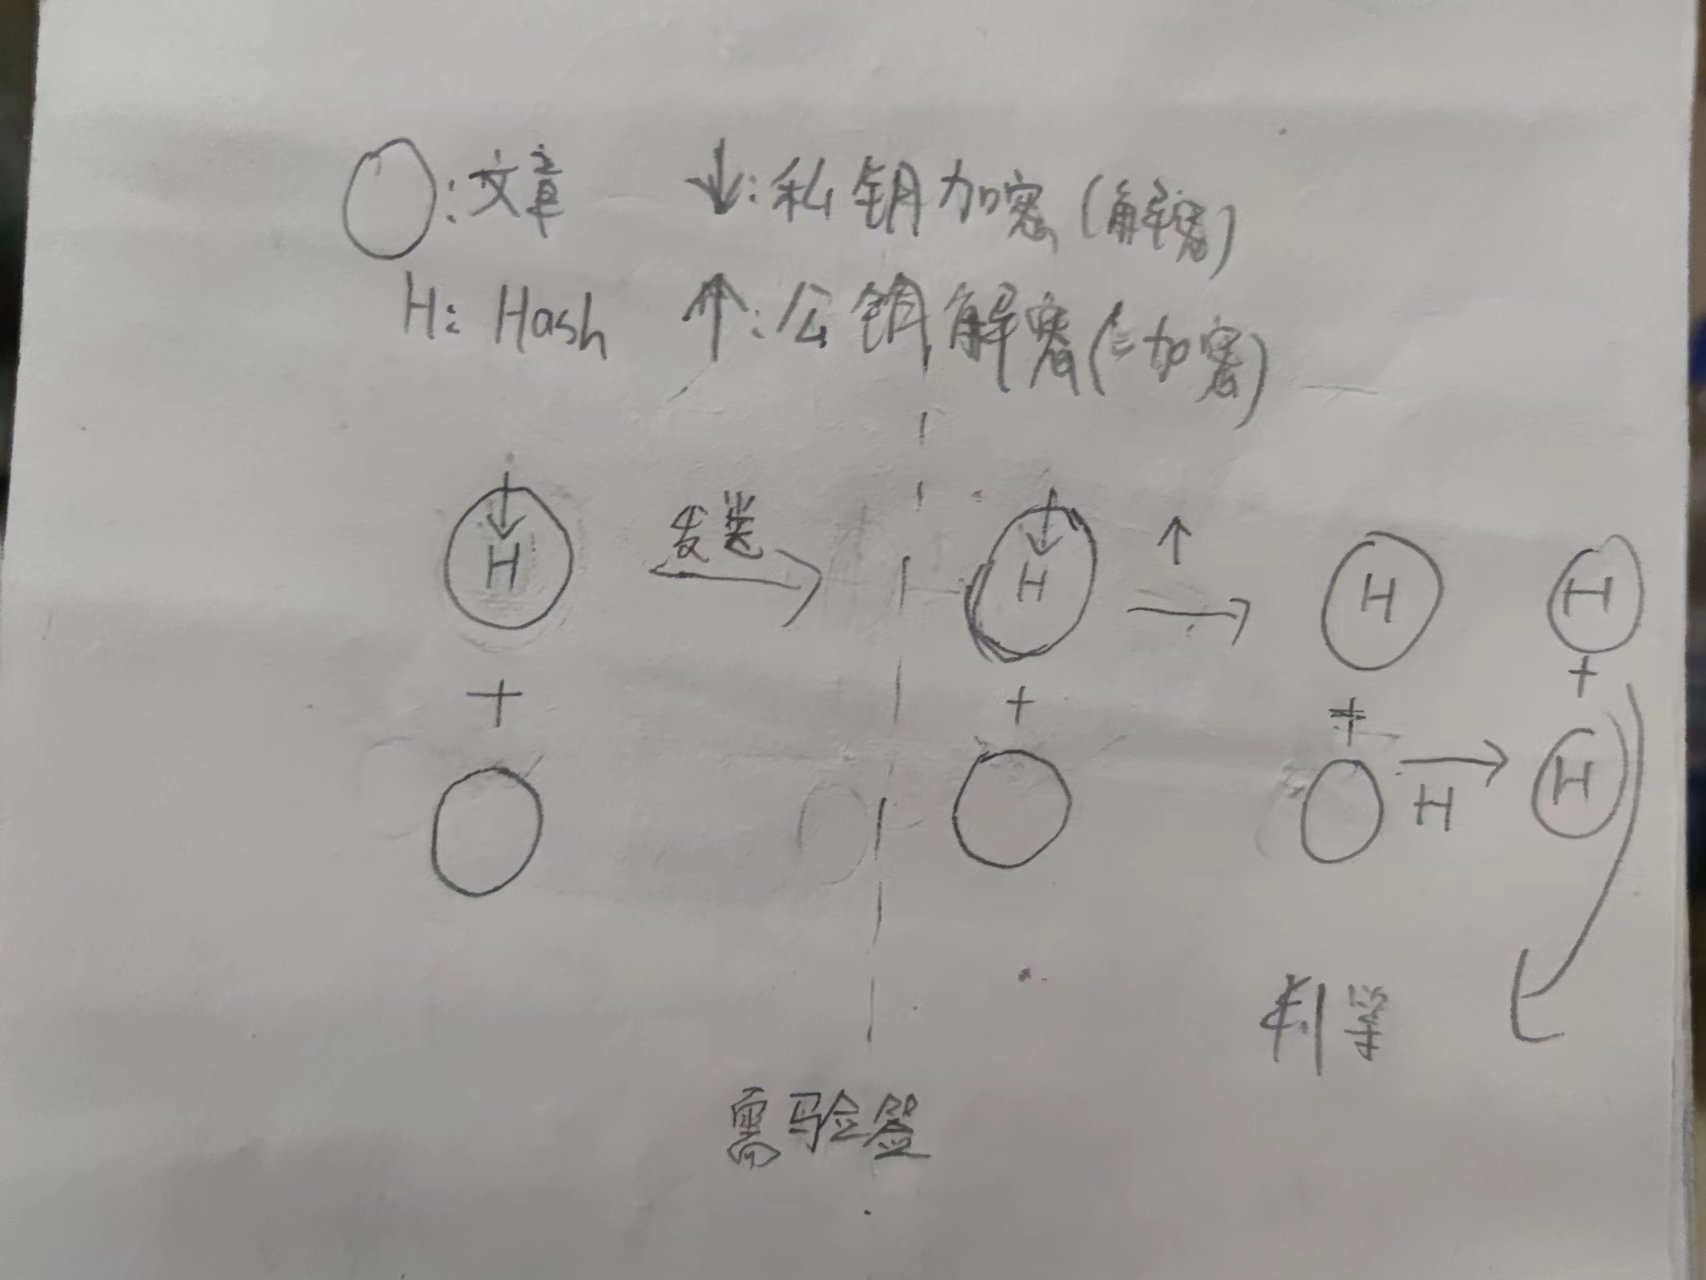 ○:文章 ↓:私钥加密(解密)
H: Hash ↑:公钥解密(=加密)
↓ 发送 ↓ ↑
H → H → H H
+ + + +
→ H
H
判等
需验签